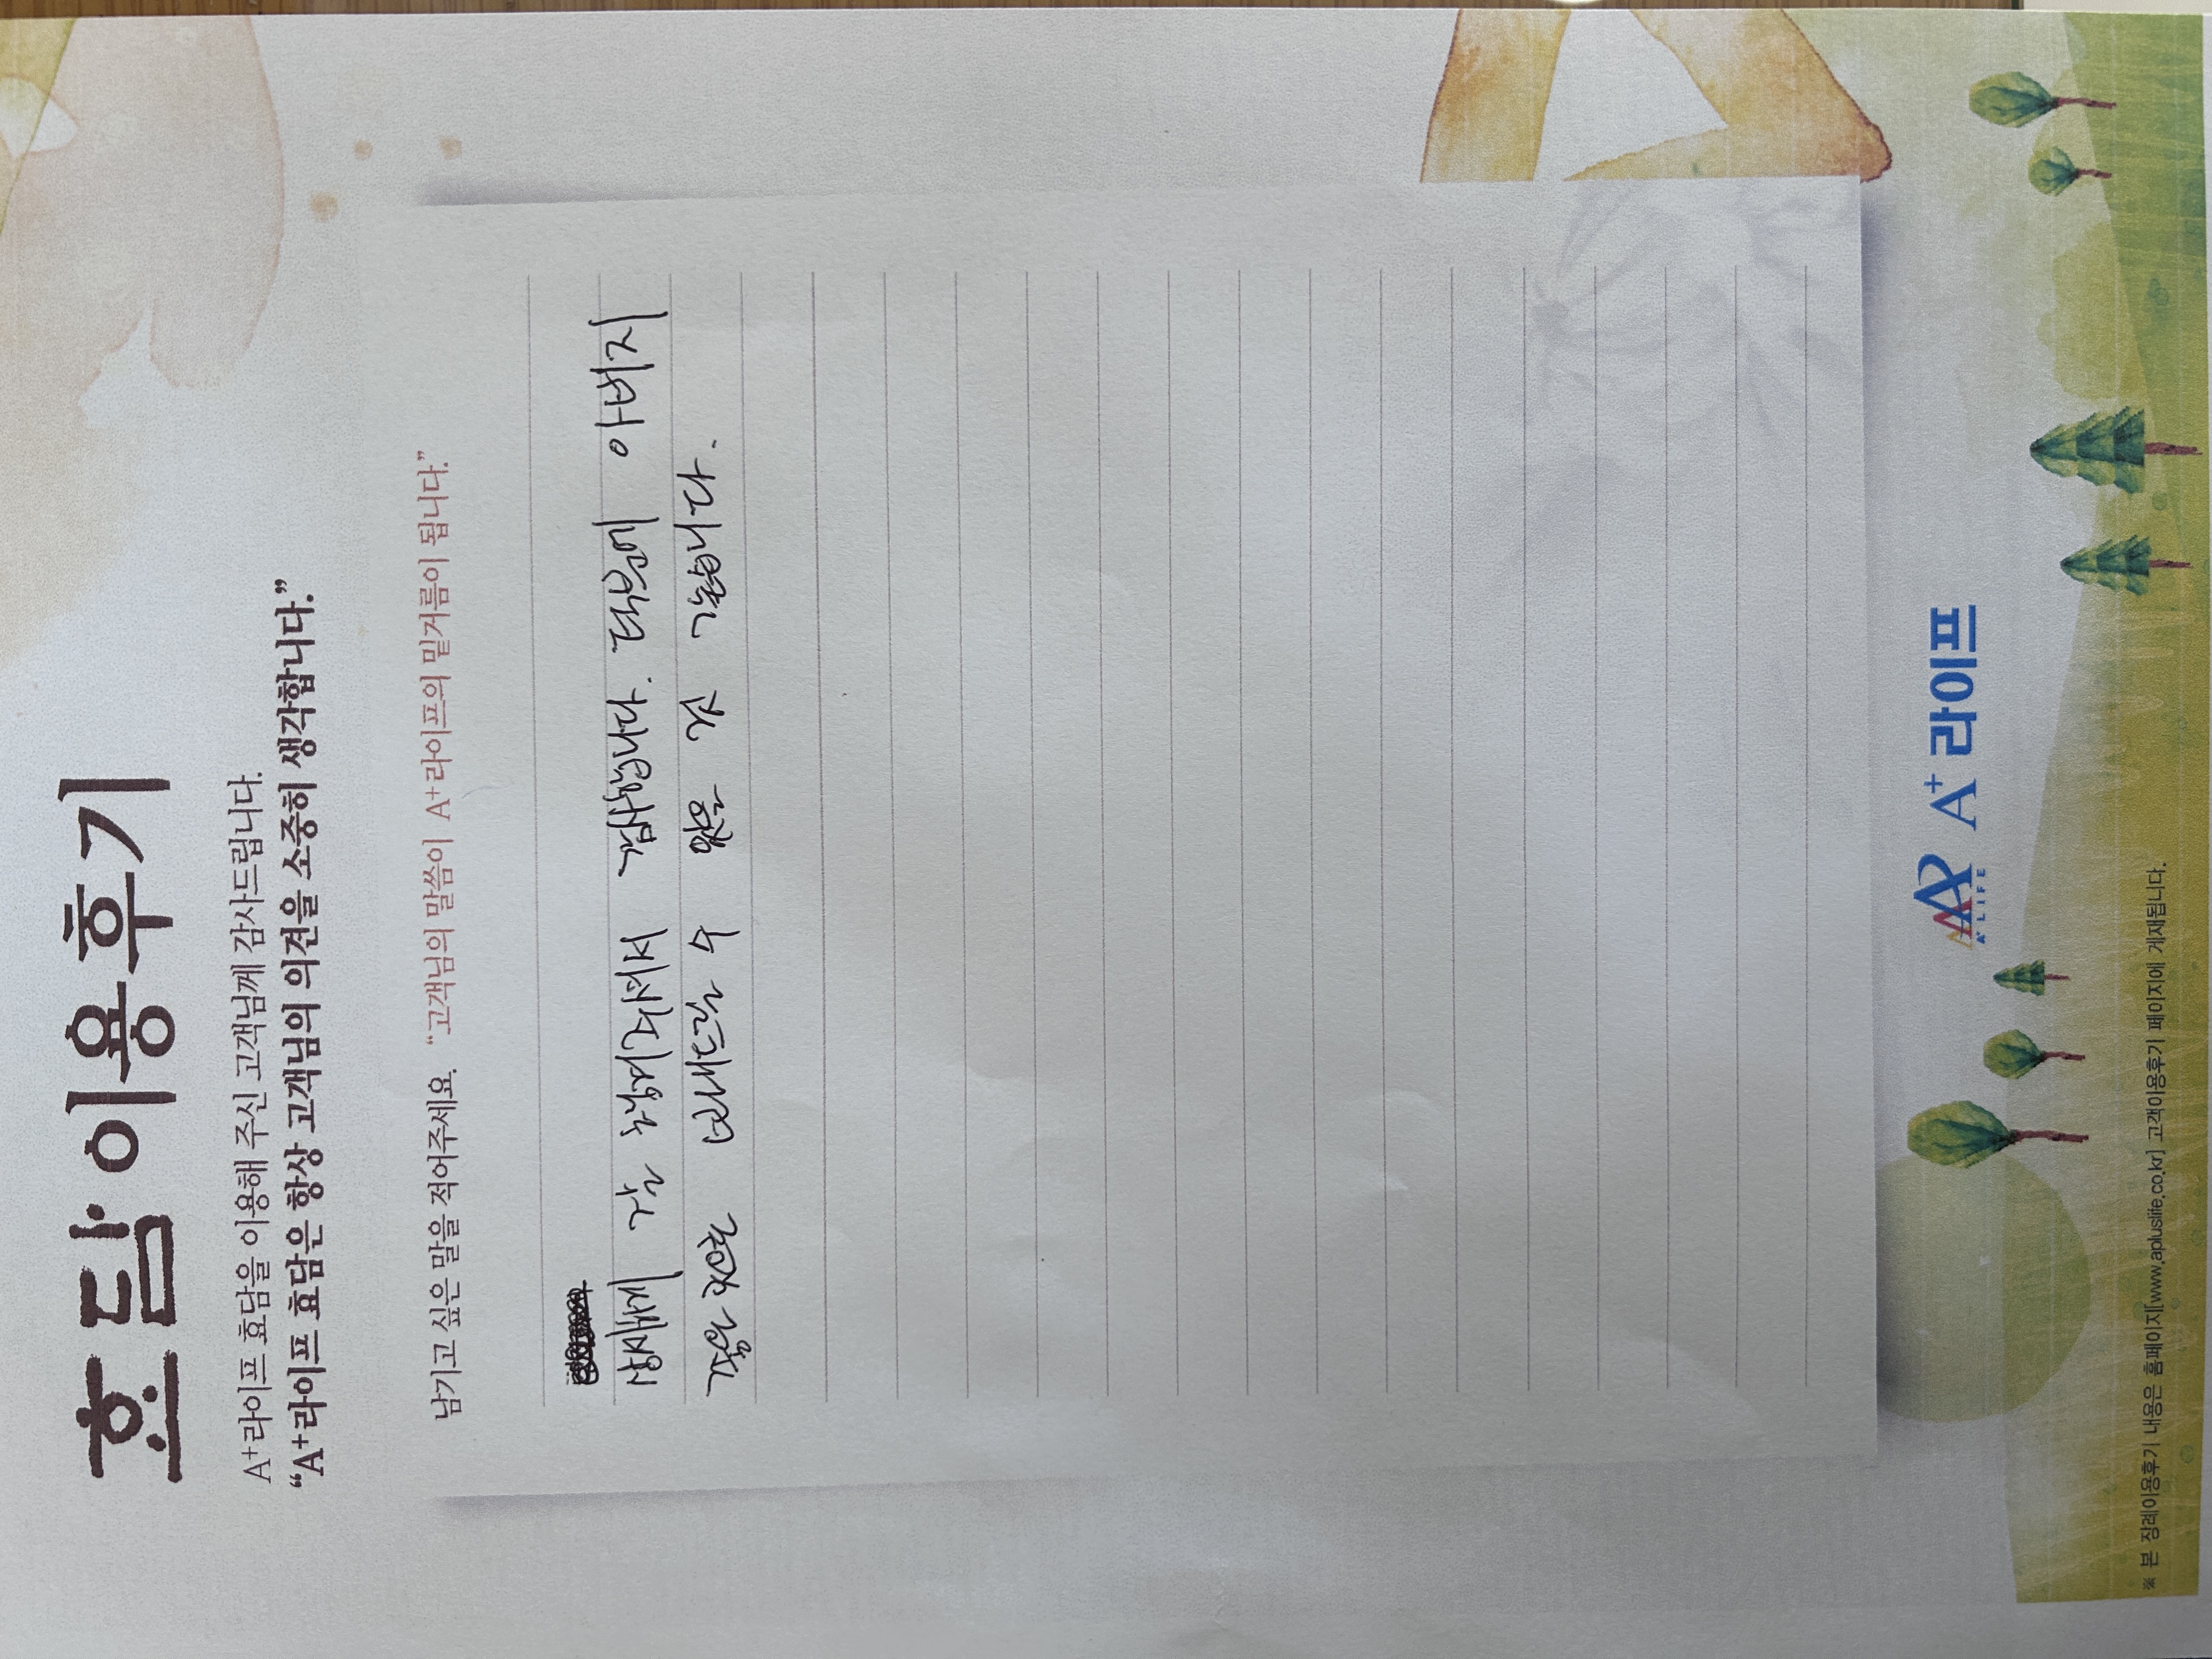 효담이용후기
A⁺라이프 효담을 이용해 주신 고객님께 감사드립니다.
“A⁺라이프 효담은 항상 고객님의 의견을 소중히 생각합니다.”
남기고 싶은 말을 적어주세요. “고객님의 말씀이 A⁺라이프의 밑거름이 됩니다.”
잘 챙겨주셔서 감사합니다. 덕분에 아버지
좋은 곳으로 보내드릴 수 있을 것 같습니다.
A⁺ LIFE A⁺ 라이프
※ 본 장례이용후기 내용은 홈페이지[www.apluslife.co.kr] 고객이용후기 페이지에 게재됩니다.